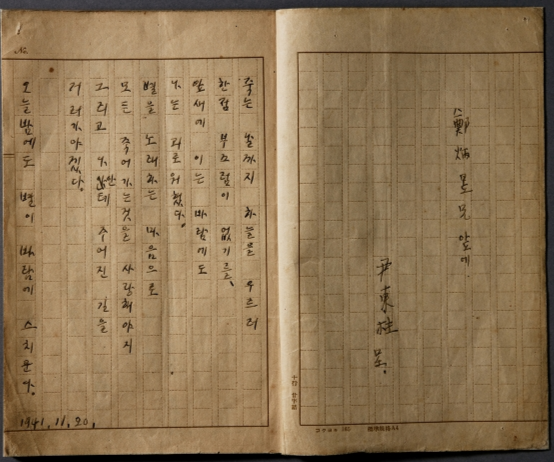 鄭炳昱兄 앞에
尹東柱 呈.
죽는 날까지 하늘을 우르러
한점 부끄럼이 없기를,
잎새에 이는 바람에도
나는 괴로워했다.
별을 노래하는 마음으로
모든 죽어가는것을 사랑해야지
그리고 나안테 주어진 길을
거러가야겠다.
오늘밤에도 별이 바람에 스치운다.
1941.11.20.
No.